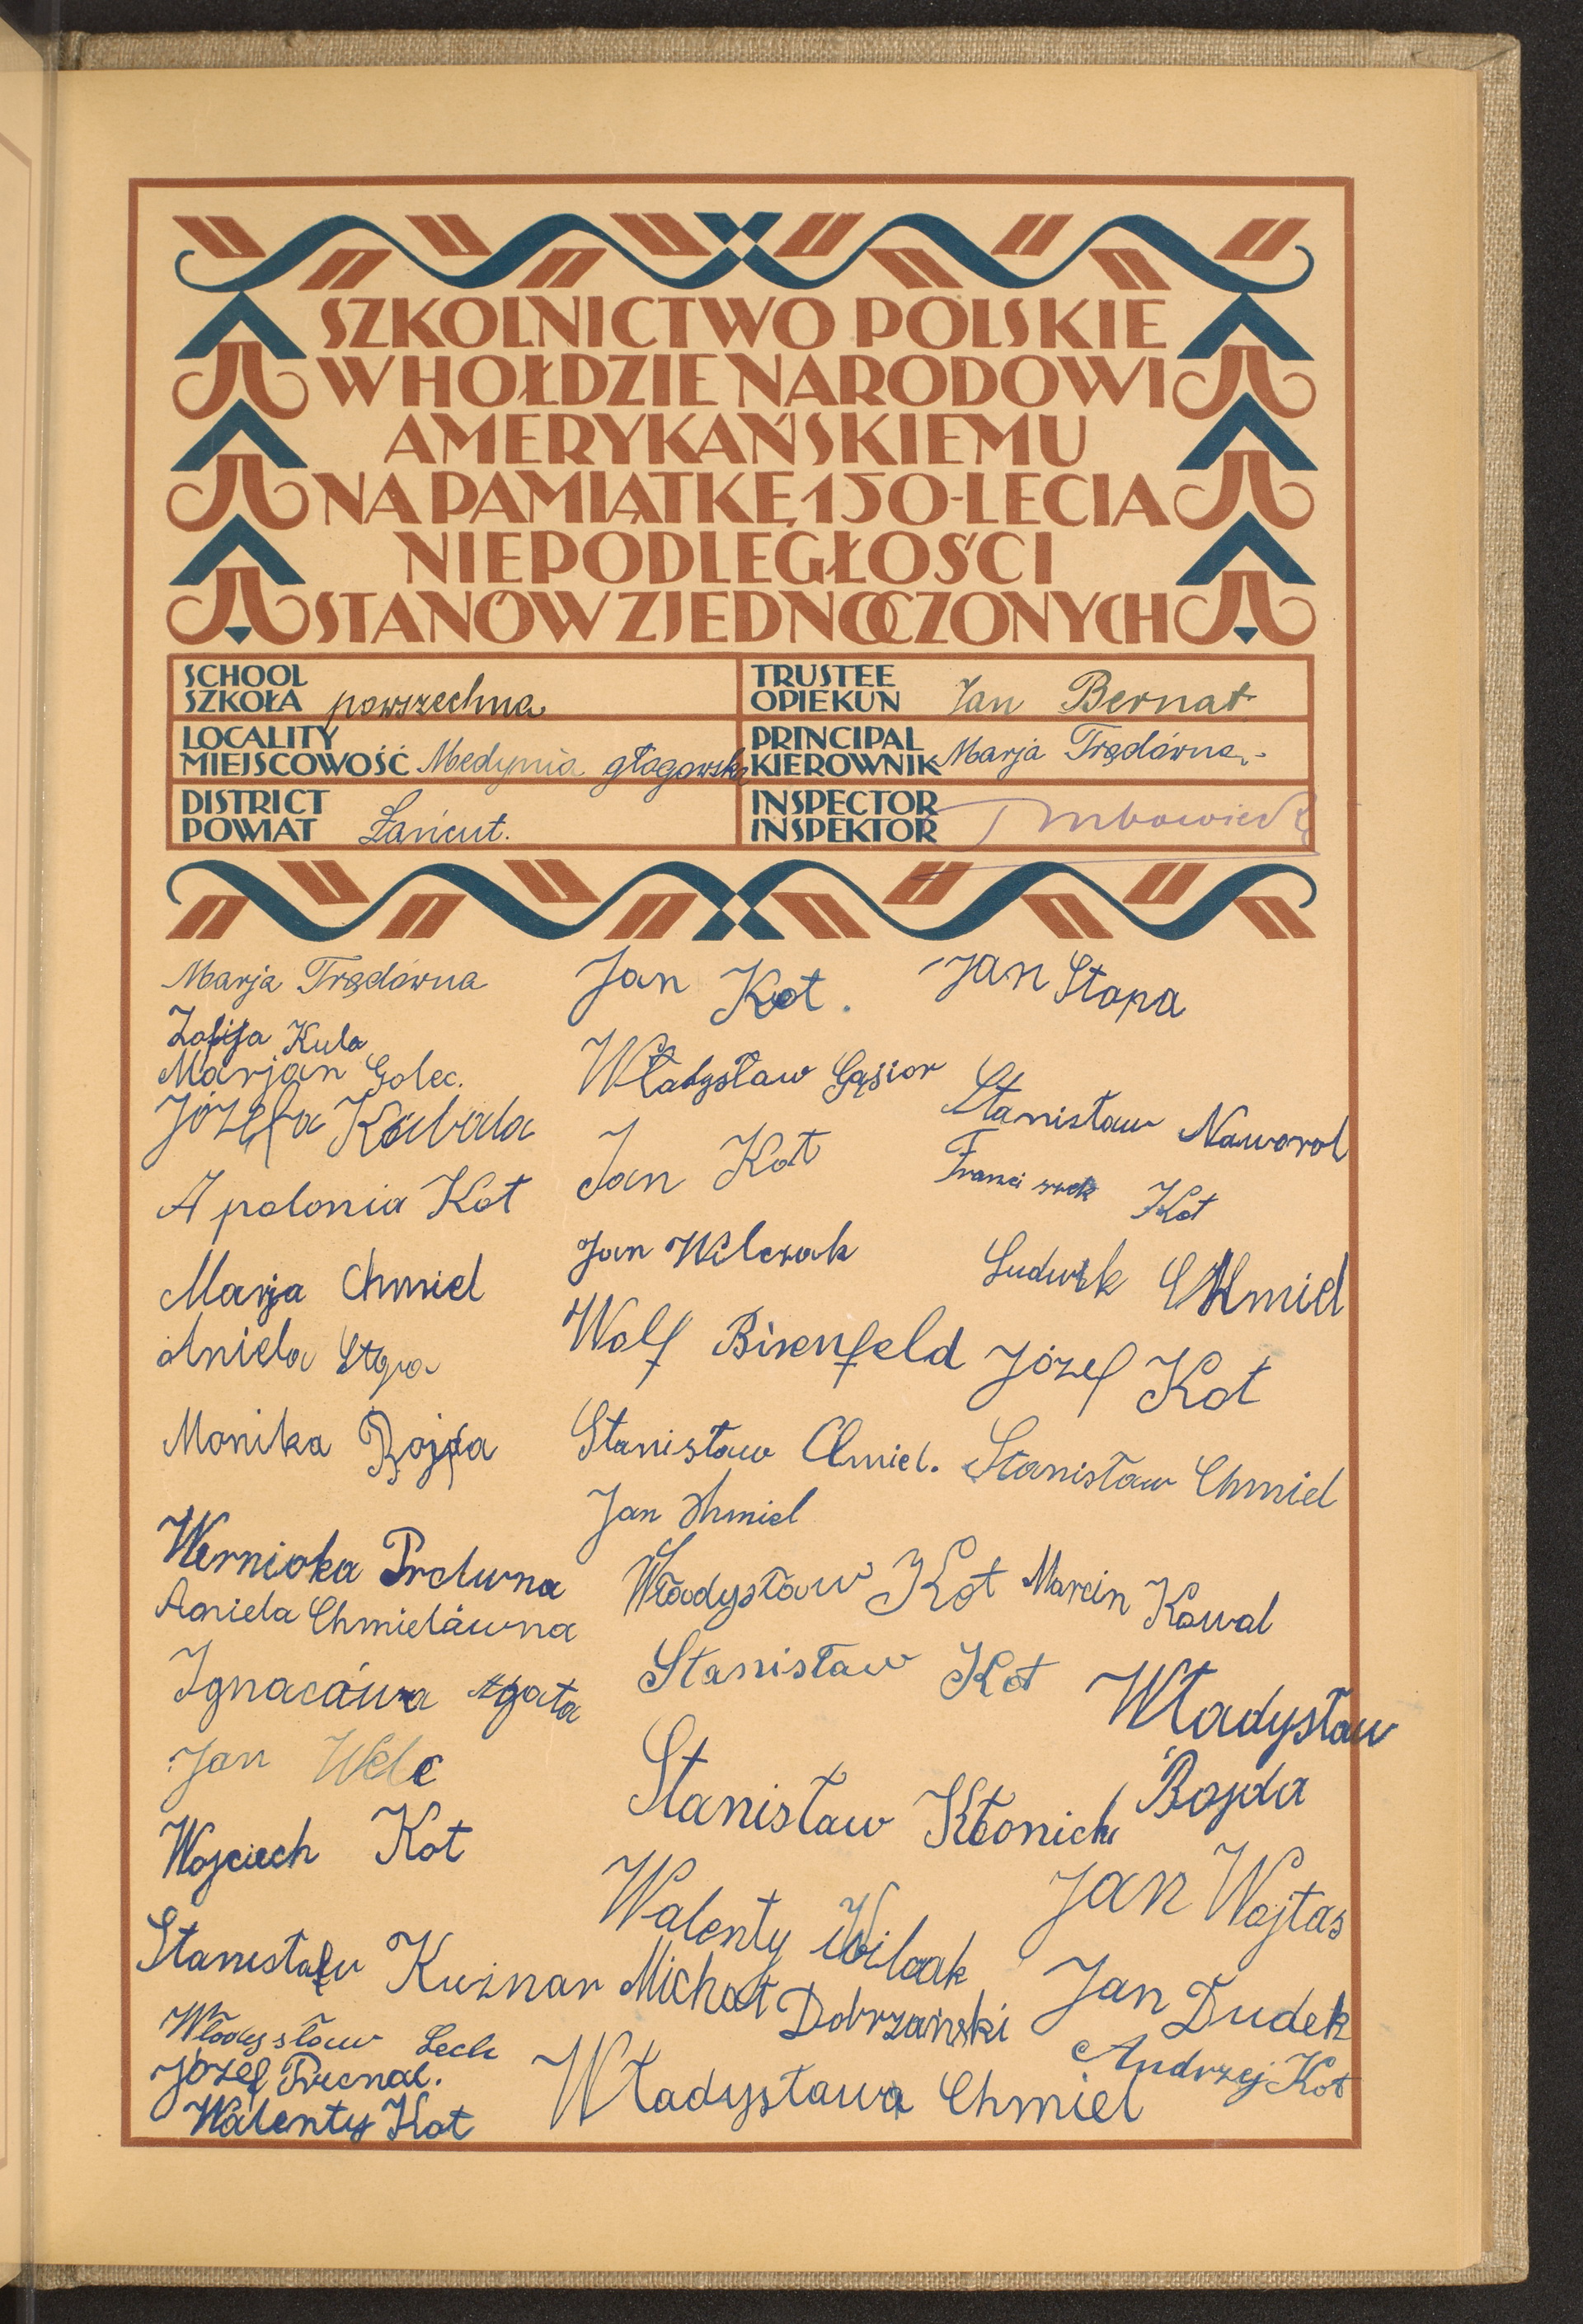 SZKOLNICTWO POLSKIE
W HOŁDZIE NARODOWI
AMERYKAŃSKIEMU
NA PAMIĄTKĘ 150-LECIA
NIEPODLEGŁOŚCI
STANÓW ZJEDNOCZONYCH
SCHOOL
SZKOŁA powszechna
TRUSTEE
OPIEKUN Jan Bernat
LOCALITY
MIEJSCOWOŚĆ Medynia głogowska
PRINCIPAL
KIEROWNIK Marja Trędówna
DISTRICT
POWIAT Łańcut.
INSPECTOR
INSPEKTOR
Marja Trędówna
Zofija Kula
Marjan Golec.
Józefa Kubala
Apolonia Kot
Marja Chmiel
Aniela
Monika Bojda
Aniela Chmielówna
Agata
Jan Welc
Wojciech Kot
Stanisław Kuźnar
Władysław Lech
Józef
Walenty Kot
Jan Kot.
Władysław Gąsior
Jan Kot
Jan Wilczak
Wolf Birenfeld
Stanisław Chmiel.
Jan Chmiel
Władysław Kot
Stanisław Kot
Stanisław
Walenty
Michał Dobrzański
Władysława Chmiel
Jan Stopa
Stanisław Naworol
Franciszek Kot
Ludwik CHmiel
Józef Kot
Stanisław Chmiel
Marcin Kowal
Władysław
Bojda
Jan Wojtas
Jan Dudek
Andrzej Kot